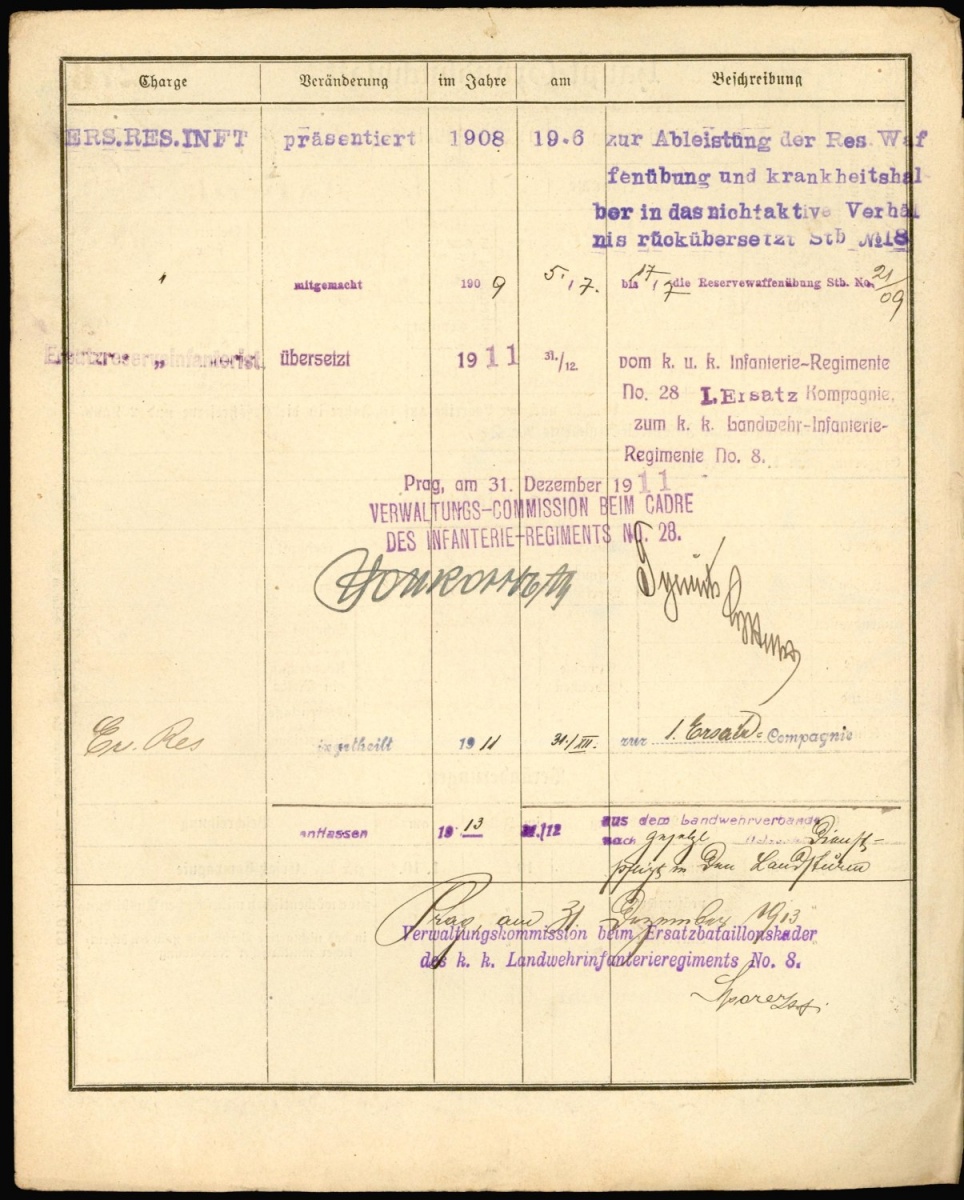 Charge Veränderung im Jahre am Beschreibung
ERS.RES.INFT präsentiert 1908 19.6 zur Ableistung der Res. Waf
fenübung und krankheitshal
ber in das nichtaktive Verhält
nis rückübersetzt Stb № 18
" mitgemacht 1909 5./7. bis 17/7 die Reservewaffenübung Stb. No. 21/09
Ersatzreserveinfanterist „ übersetzt 1911 31./12. vom k. u. k. Infanterie-Regimente
No. 28 I. Ersatz Kompagnie,
zum k. k. Landwehr-Infanterie-
Regimente No. 8.
Prag, am 31. Dezember 1911
VERWALTUNGS-COMMISSION BEIM CADRE
DES INFANTERIE-REGIMENTS NO. 28.
Er. Res eingetheilt 1911 31./XII. zur 1. Ersatz- Compagnie
entlassen 1913 31./12 aus dem Landwehrverbande
nach gesetzl. Dienst-
pflicht in den Landsturm
Prag, am 31 Dezember 1913
Verwaltungskommission beim Ersatzbataillonskader
des k. k. Landwehrinfanterieregiments No. 8.